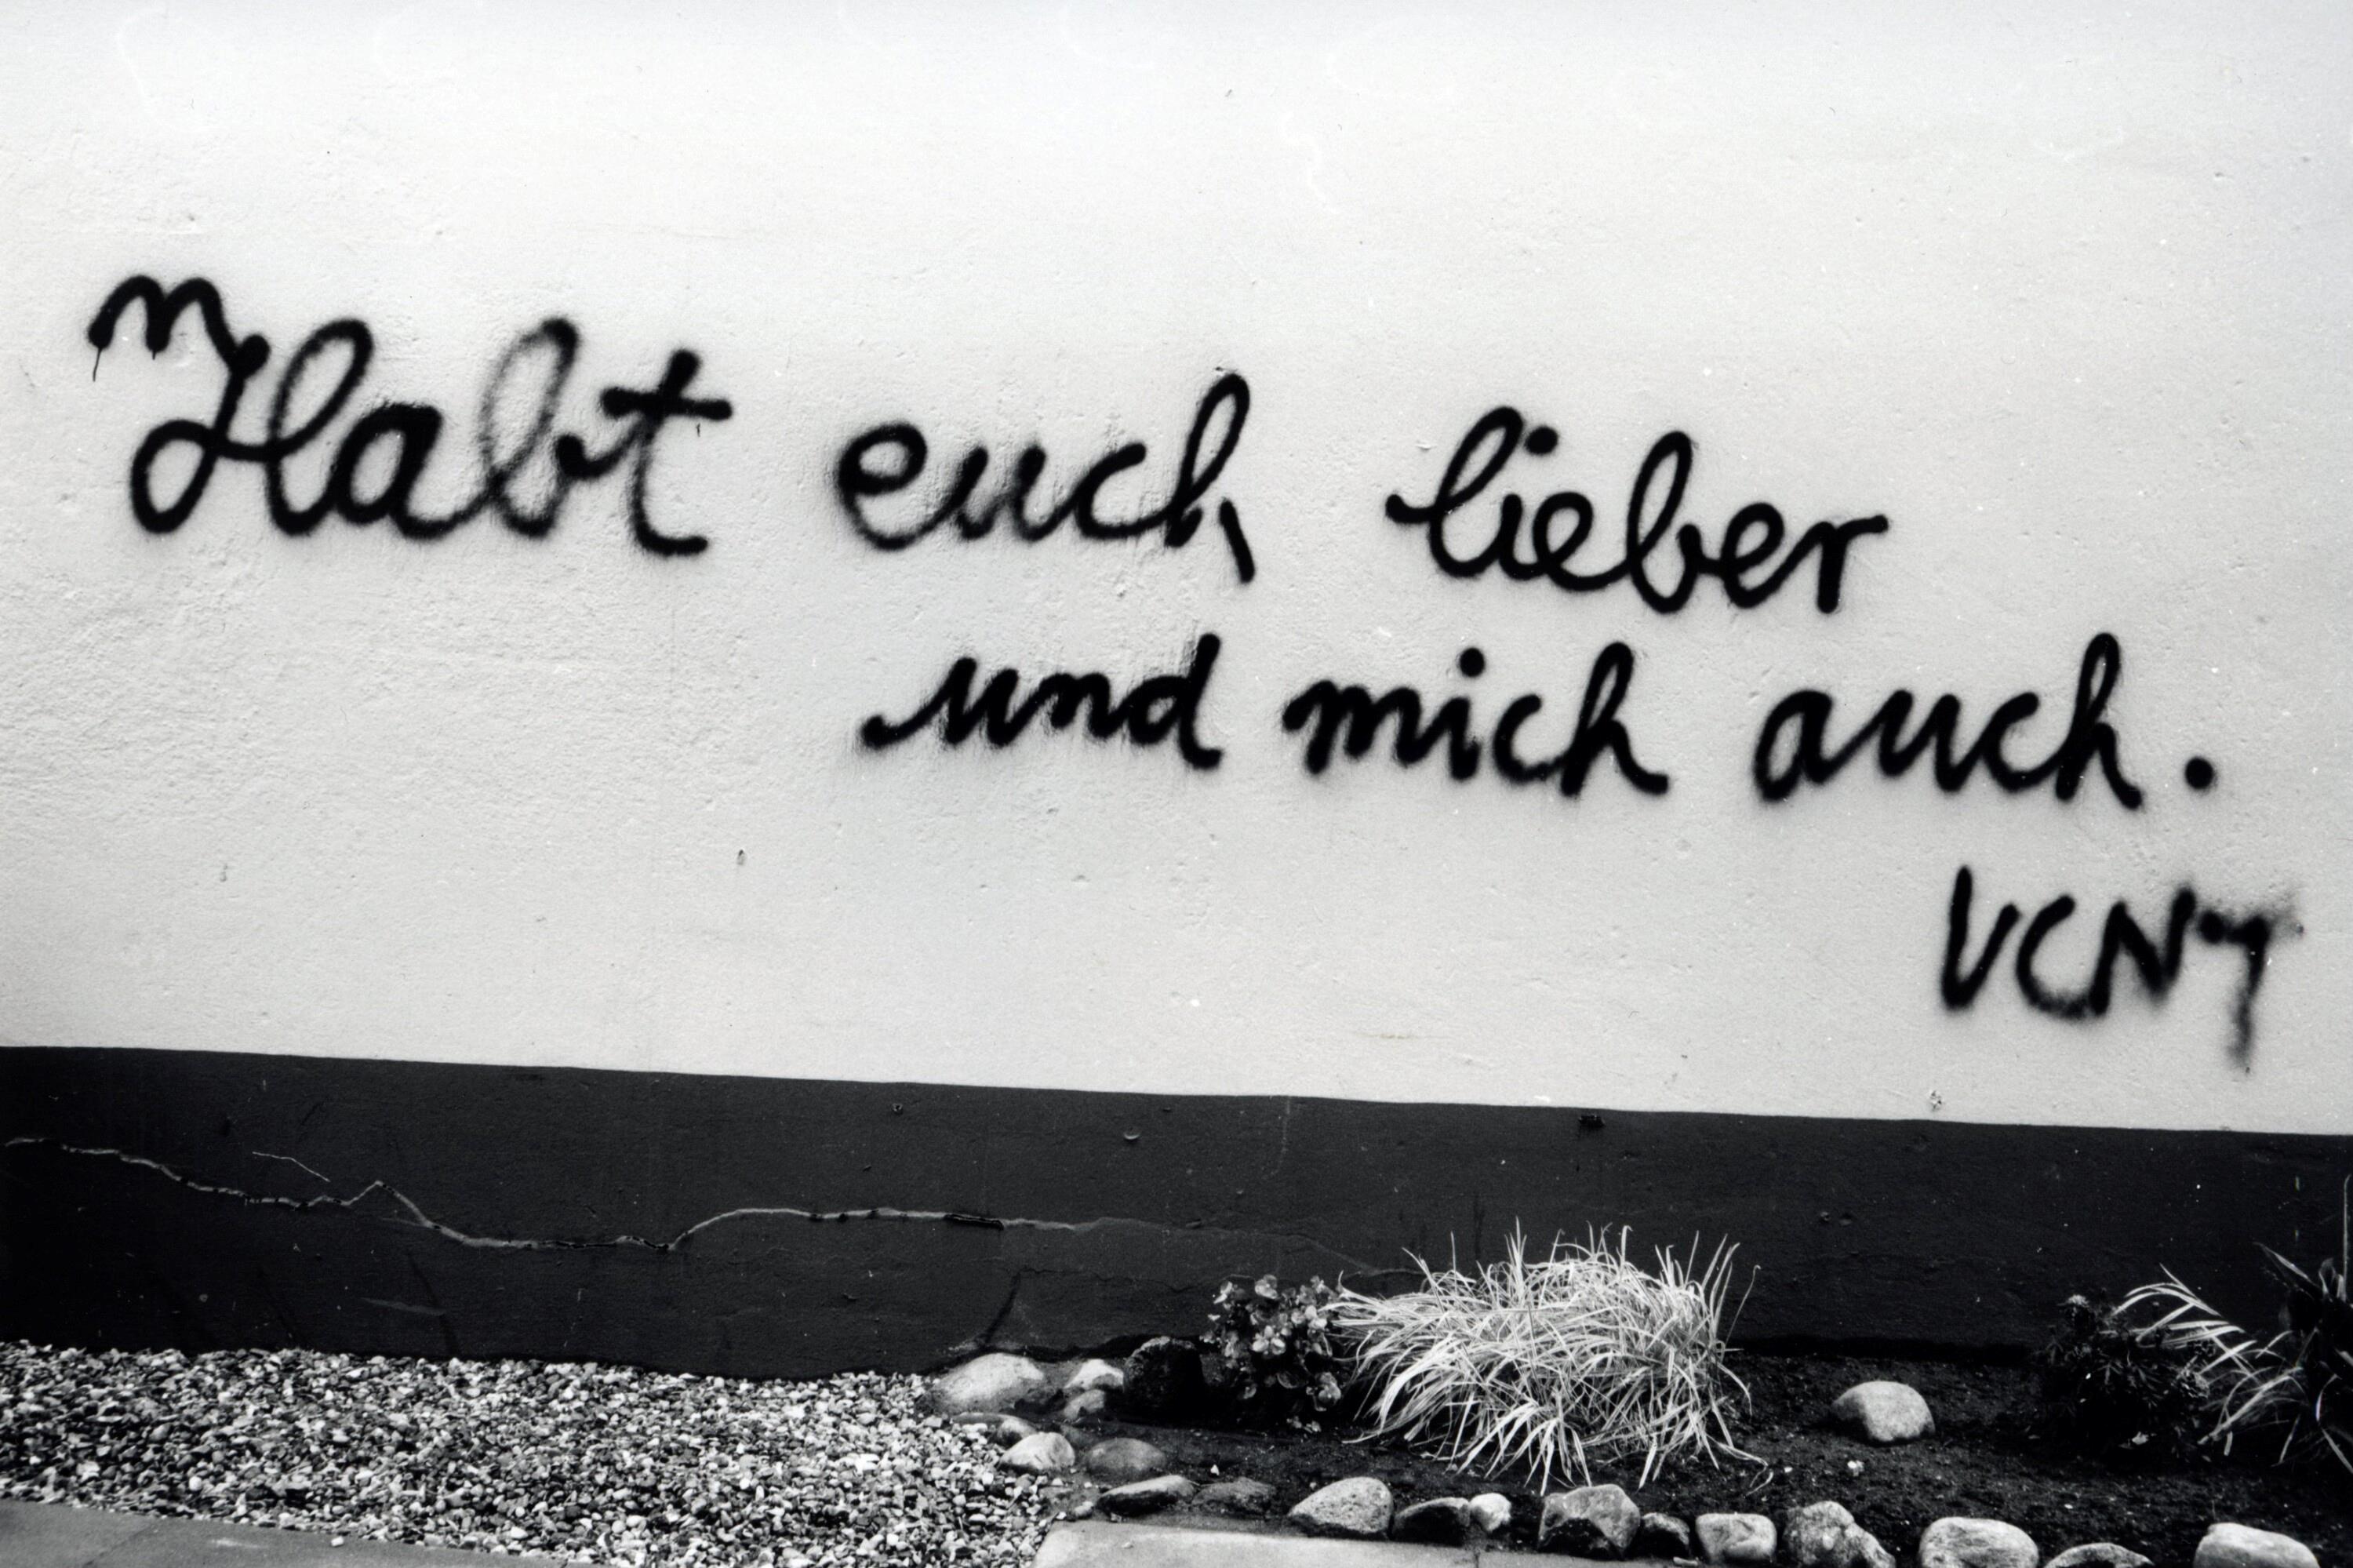 Habt euch lieber
und mich auch.